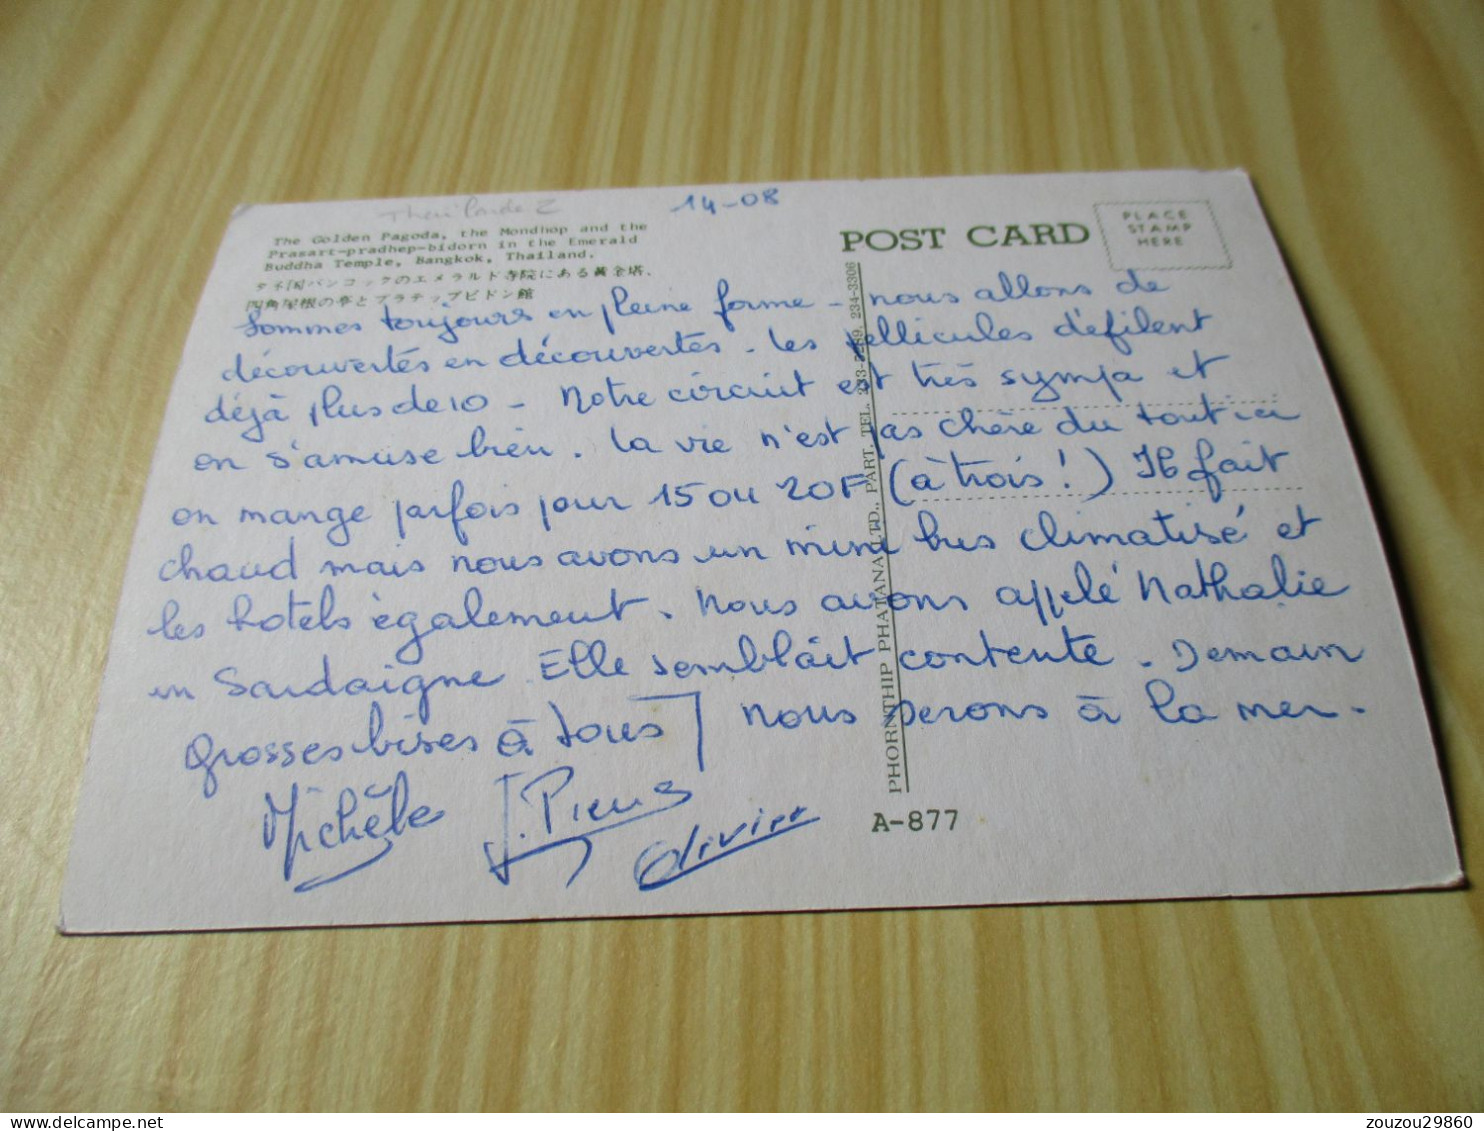 Thailande 2
14-08
The Golden Pagoda, the Mondhop and the
Prasart-pradhep-bidorn in the Emerald
Buddha Temple, Bangkok, Thailand.
タイ国バンコックのエメラルド寺院にある黄金塔、
四角屋根の亭とプラテップビドン館
POST CARD
PLACE
STAMP
HERE
Sommes toujours en pleine forme - nous allons de
découvertes en découvertes - Les pellicules défilent
déjà plus de 10 - Notre circuit est très sympa et
on s'amuse bien. La vie n'est pas chère du tout ici
on mange parfois pour 15 ou 20F (à trois!) Il fait
chaud mais nous avons un mini bus climatisé et
les hotels également. Nous avons appelé Nathalie
en Sardaigne Elle semblait contente. Demain
nous serons à la mer.
grosses bises à tous
Michèle J. Pierre Olivier
PHORNTHIP PHATANA LTD., PART. TEL. 233-3289, 234-3306
A-877
zouzou29860